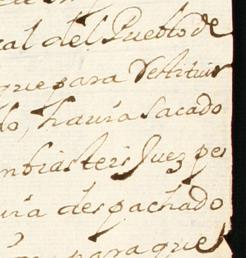 cal del Pueblo de
que para restituir
do, hauia sacado
mbiasteis Juez pes
uia despachado
para que